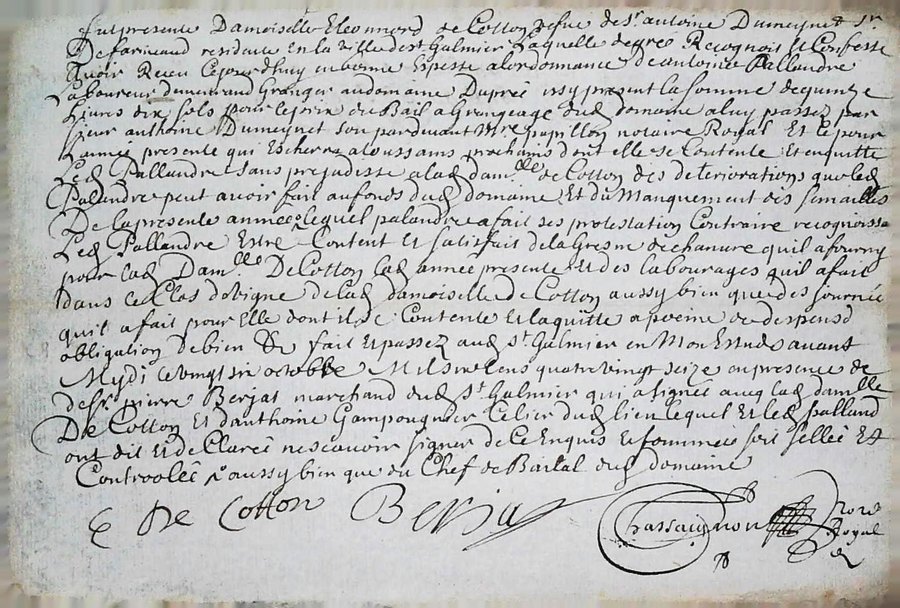 fut presente Damoiselle Eleonnord de Cotton vefve de Sr antoine Dumeynet Sr
De farineaud residente En la Ville de st Galmier Laquelle de gré Recognois et Confesse
Avoir Receu Cejourdhuy en bonne Espesse alordonnance de antoine Pallandre
Laboureur demeurant Granger au domaine Dupréé issy present la somme de quinze
Livres dix sols pour le prix du Bail a Grangeage dud domaine a luy passez par
sieur anthoine Dumeynet son pardevant Mre papillon notaire Royal Et ce pour
Lannéé presente qui Escherra a toussams prochains dont elle se Contente Et en quitte
Led Pallandre Sans prejudisse a lad damlle de Cotton des deteriorations que led
Pallandre peut avoir fait au fonds dud domaine Et du Manquement des semailles
De la presente année Lequel palandre a fait ses protestation Contraire recognoissa
Led Pallandre Estre Content Et satisfait de la Gresne de chanvre quil a fourny
pour lad Damlle De Cotton lad année presente Et des labourages quil a fait
dans le Clos de vigne de lad damoiselle de Cotton aussy bien que des journée
quil a fait pour Elle dont il se Contente Et la quitte a poeine de despens d
obligation De bien &c fait Et passez aud st Galmier en Mon Estude avant
Mydi le vingt six octobre Mil six Cens quatre vingt seize en presence de
de sr pierre Berjas marchand dud st Galmier qui a signéé avec lad damlle
De Cotton Et danthoine Gampougnier Celier dud lieu lequel Et led palland
ont dit Et de Claréé ne scavoir signer de Ce Enquis Et sommeis soit selléé Et
Controoléé aussy bien que du Chef de Bailal dud domaine
E De Cotton Berjas Chassaignon Nore
Royal